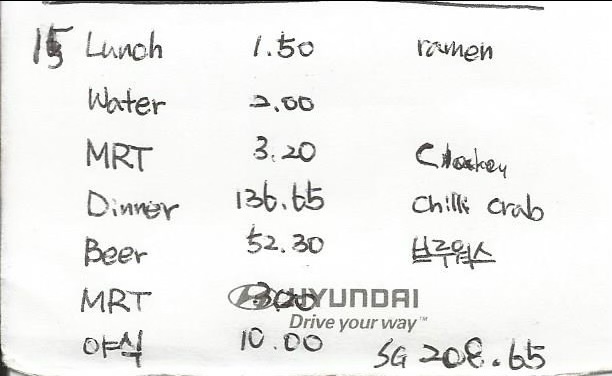 15 Lunch 1.50 ramen
Water 2.00
MRT 3.20
Dinner 136.65 chilli crab
Beer 52.30 브루웍스
MRT 3.00 HYUNDAI
Drive your way™
야식 10.00 SG 208.65